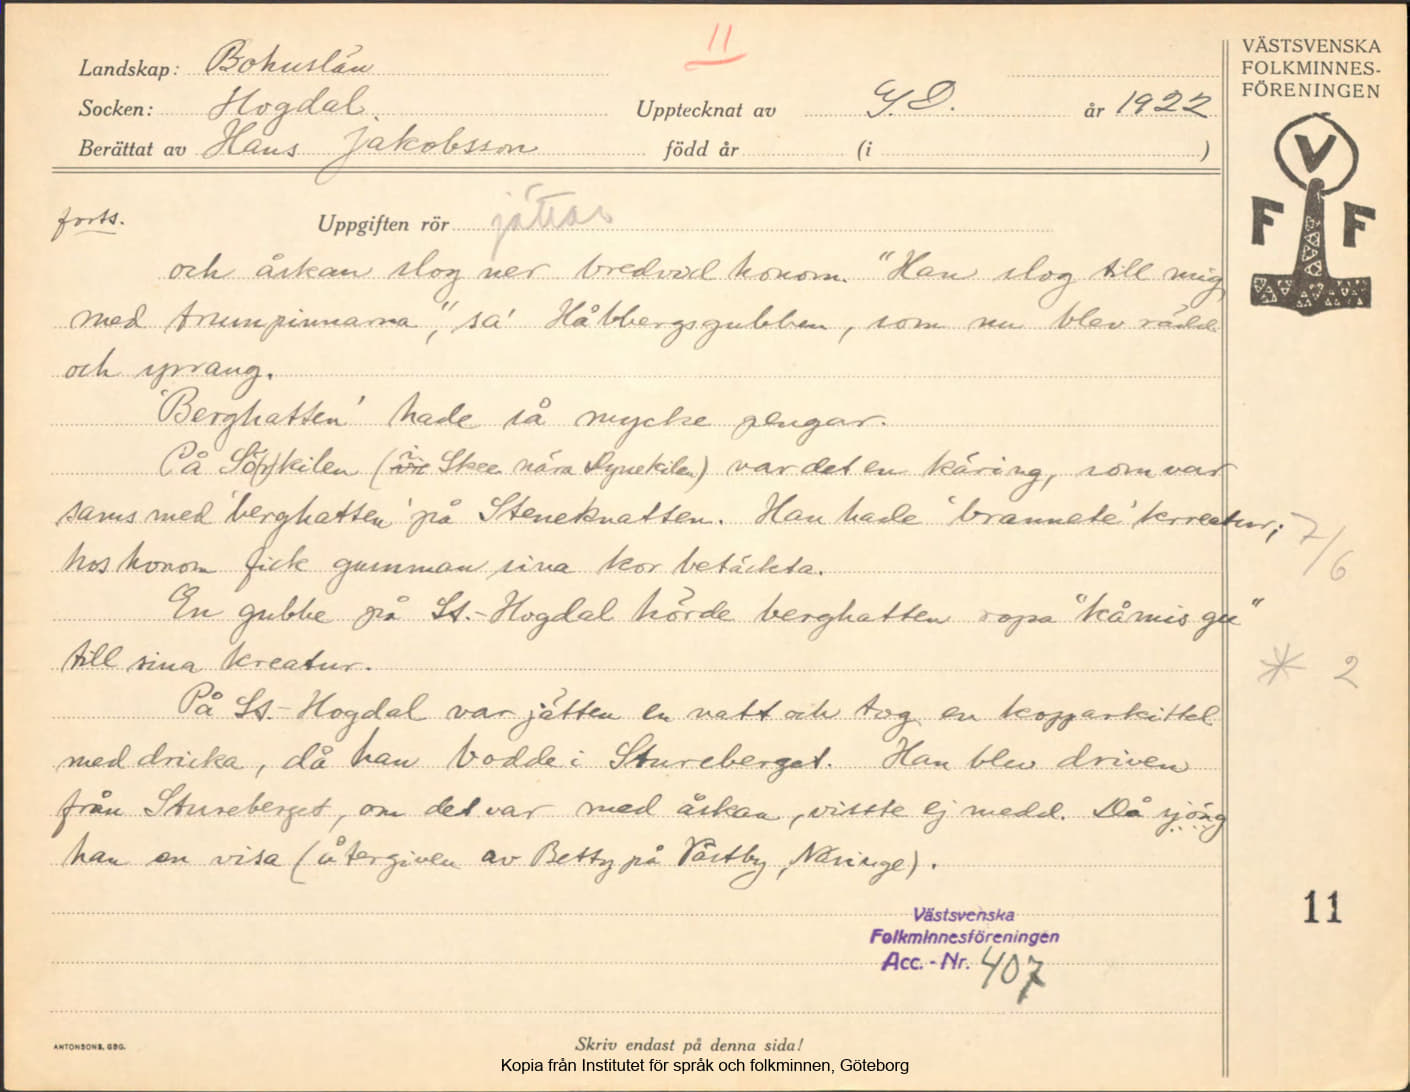 11
Landskap: Bohuslän
Socken: Hogdal.
Upptecknat av G. D. år 1922
Berättat av Hans Jakobsson född år (i )
VÄSTSVENSKA
FOLKMINNES-
FÖRENINGEN
V
F F
forts. Uppgiften rör jättar
och åskan slog ner bredvid honom. "Han slog till mig
med trumpinnarna", sa' Håbbergsgubben, som nu blev rädd
och sprang.
'Berghatten' hade så mycke pengar.
På Sö(r)kilen (i Skee nära Dynekilen) var det en käring, som var
sams med 'berghatten' på Steneknatten. Han hade 'brannete' kreatur;
hos honom fick gumman sina kor betäckta.
7/6
En gubbe på St.-Hogdal hörde berghatten ropa "kåmis gu"
till sina kreatur.
* 2
På St.-Hogdal var jätten en natt och tog en kopparkittel
med dricka, då han bodde i Stureberget. Han blev driven
från Stureberget, om det var med åskan, visste ej medd. Då sjöng
han en visa (återgiven av Betty på Västby, Näsinge).
11
Västsvenska
Folkminnesföreningen
Acc.-Nr. 407
ANTONSONS, GBG.
Skriv endast på denna sida!
Kopia från Institutet för språk och folkminnen, Göteborg